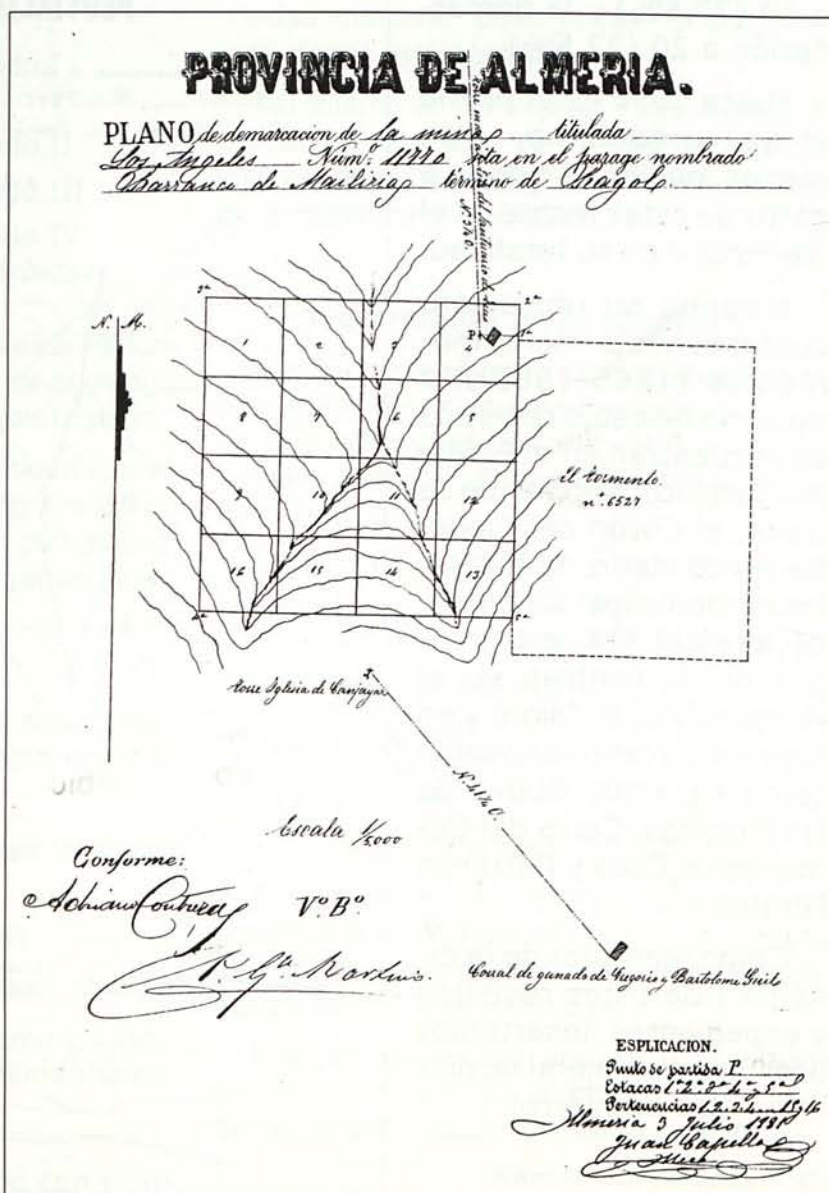 PROVINCIA DE ALMERIA.
PLANO de demarcacion de la mina titulada
Los Angeles Núm.º 11770 sita en el parage nombrado
Barranco de término de Chagol
N. M.
3ª
2ª
1ª
P.
1
2
3
4
8
7
6
5
9
10
11
12
16
15
14
13
4ª
5ª
El tormento.
nº 6527
Torre Iglesia de Canjayar
Escala 1/5000
Conforme:
Adriano Contreras
Vº Bº
P. Gª Martinis.
Corral de ganado de Gregorio y Bartolome
ESPLICACION.
Punto de partida P.
Estacas 1ª 2ª 3ª 4ª y 5ª
Pertenencias 1. 2. 15 y 16
Almeria 3 Julio
Juan